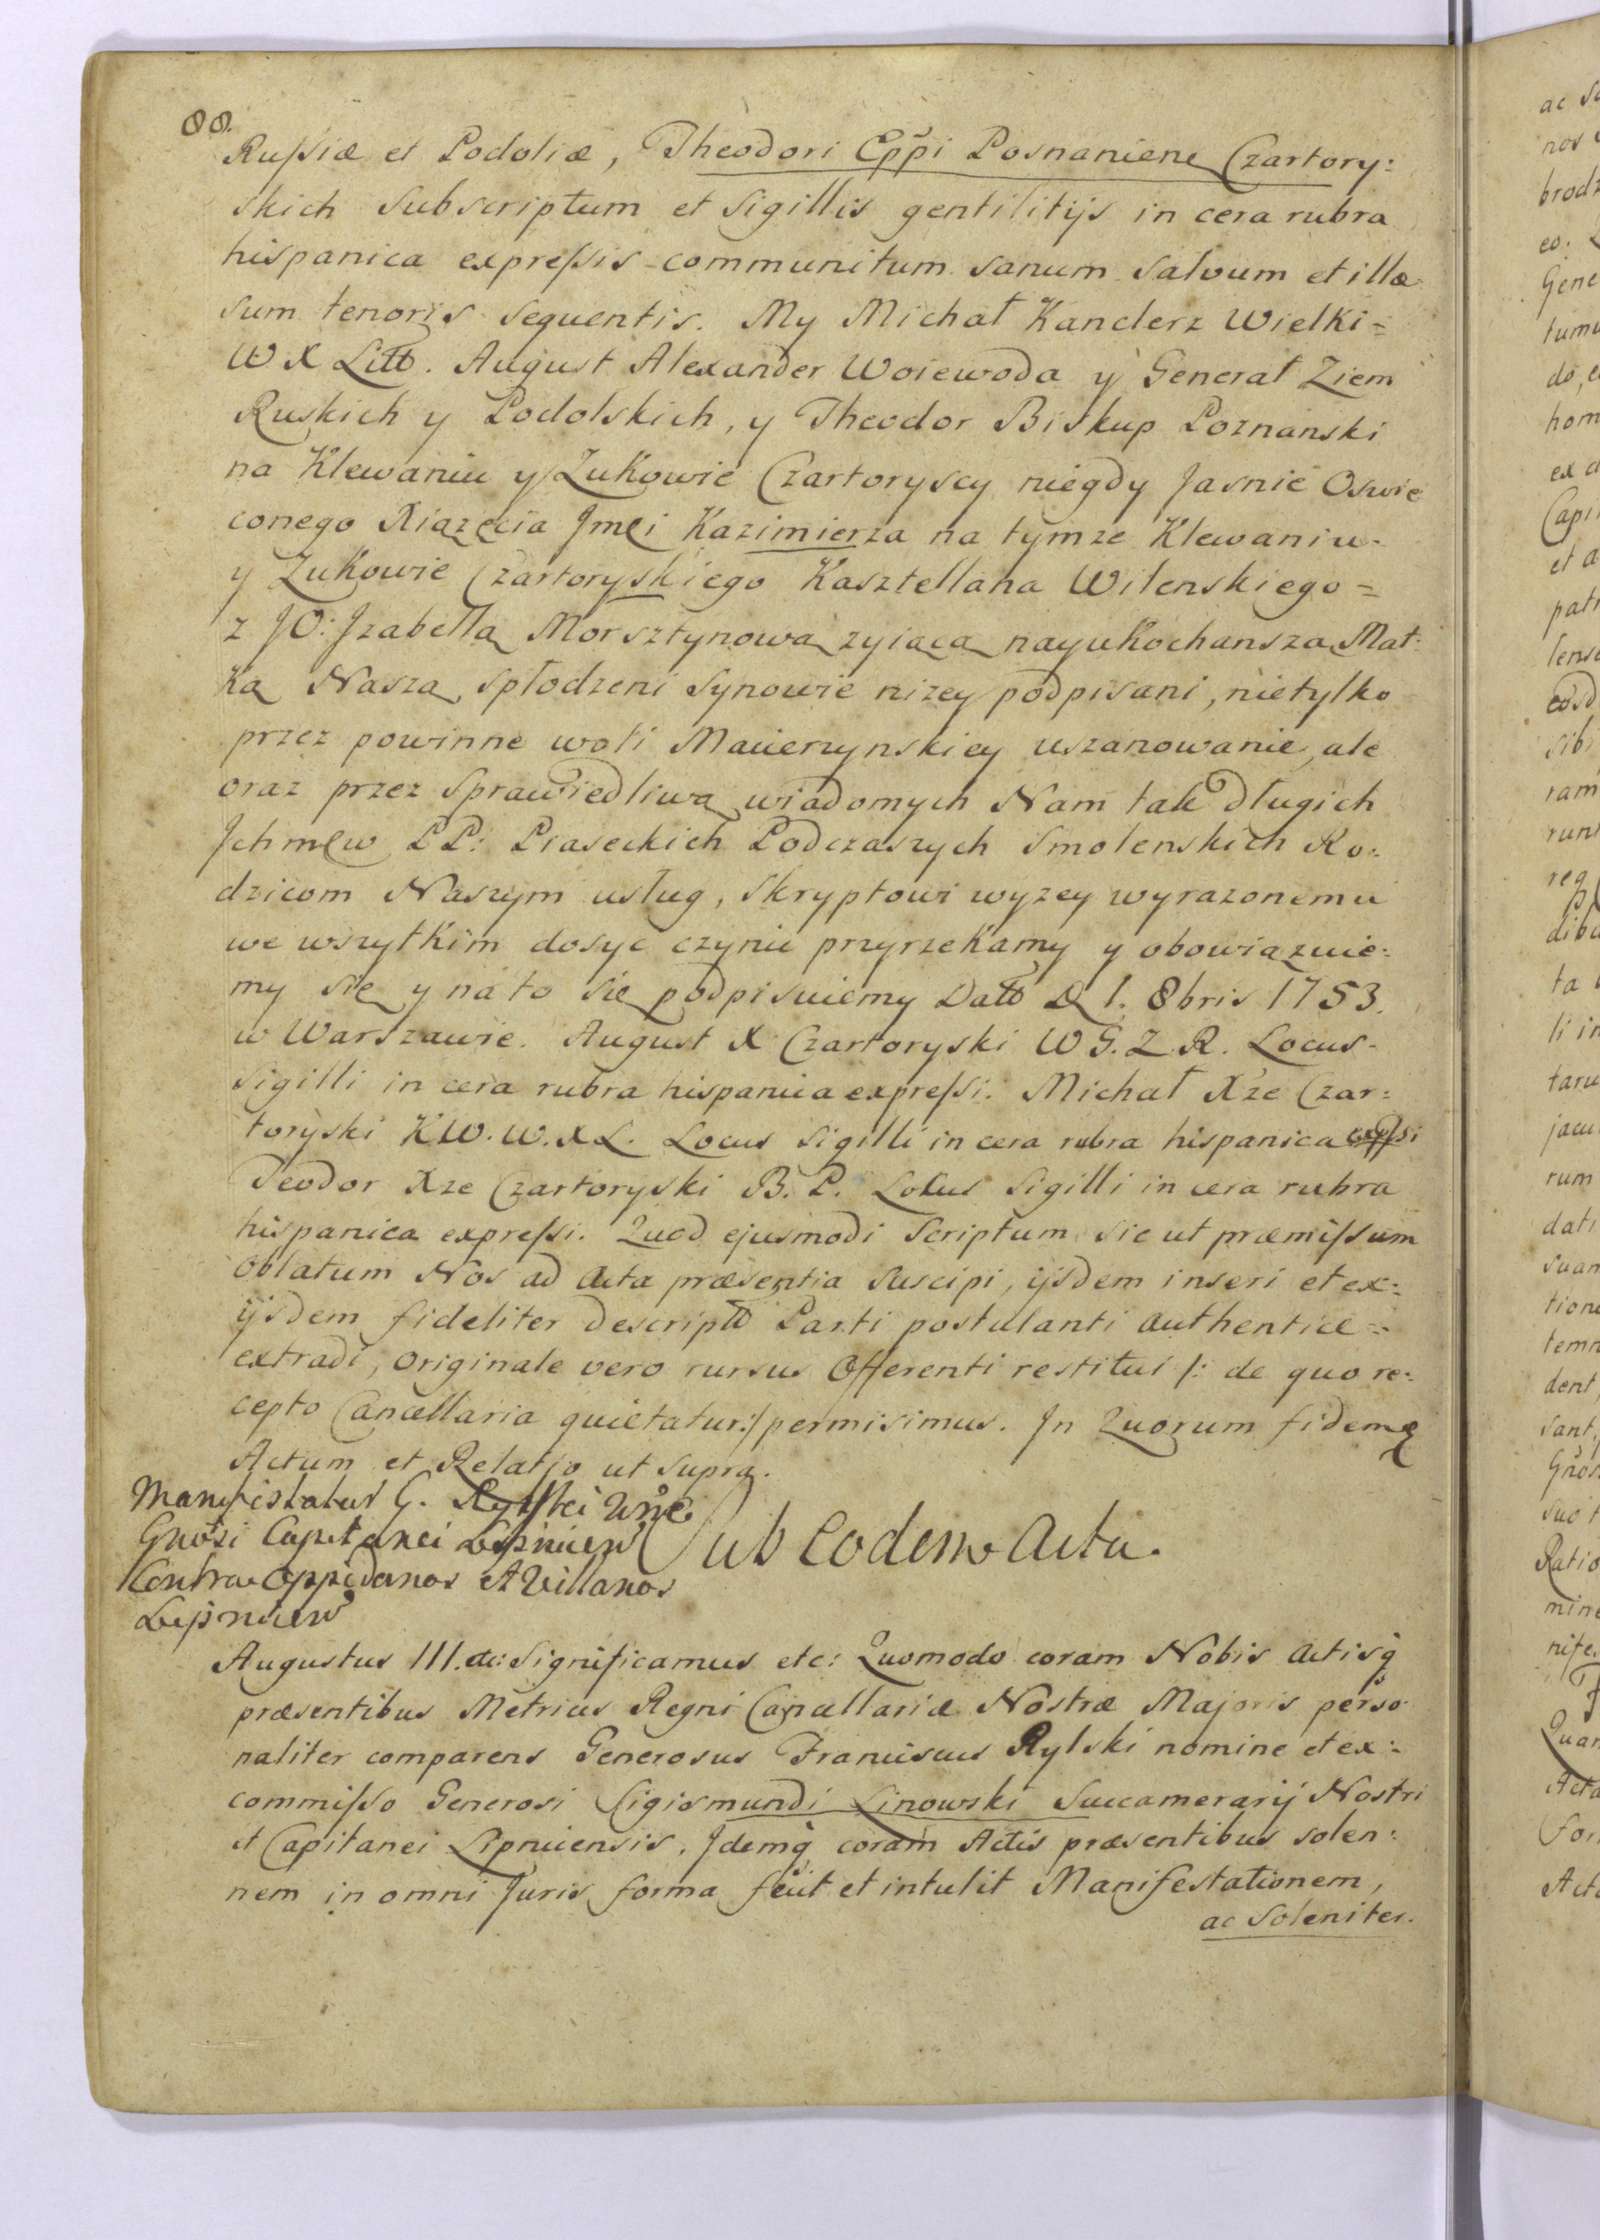 88.
Russiæ et Podoliæ, Theodori Eppi Posnaniens Czartory:
skich subscriptum et sigillis gentilitijs in cera rubra
hispanica expressis communitum sanum salvum et illæ
sum tenoris sequentis. My Michał Kanclerz Wielki=
W X Litt. August Alexander Woiewoda y Generał Ziem
Ruskich y Podolskich, y Theodor Biskup Poznanski
na Klewaniu y Zukowie Czartoryscy niegdy Jasnie Oswie
conego Xiązęcia Jmci Kazimierza na tymze Klewaniu
y Zukowie Czartoryskiego Kasztellana Wilenskiego=
z JO: Jzabellą Morsztynową zyiącą nayukochanszą Mat:
ką Naszą spłodzeni Synowie nizey podpisani, nietylko
przez powinne woli Macierzynskiey uszanowanie, ale
oraz przez sprawiedliwą wiadomych Nam tak długich
Jchmcw PP: Piaseckich Podczaszych Smolenskich Ro:
dzicom Naszym usług, skryptowi wyzey wyrazonemu
we wszytkim dosyc czynic przyrzekamy y obowiązuie:
my się y na to się podpisuiemy Datt D 1. 8bris 1753.
w Warszawie. August X Czartoryski W G. Z. R. Locus
Sigilli in cera rubra hispanica expressi. Michał X'ze Czar:
toryski K.W.W.X L. Locus Sigilli in cera rubra hispanica exssi
Teodor Xze Czartoryski B. P. Locus Sigilli in cera rubra
hispanica expressi. Quod ejusmodi Scriptum sic ut præmissum
Oblatum Nos ad Acta præsentia suscipi, ijsdem inseri et ex:
ijsdem fideliter descriptt Parti postulanti authentice=
extradi, Originale vero rursus Offerenti restitui /: de quo re:
cepto Cancellaria quietatur:/ permisimus. Jn Quorum fidem
Actum et Relatio ut supra.
Manifestatur G. Rylski Nne
Gnosi Capitanei Lipnicen
Contra Oppidanos et Villanos
Lipnicen
Sub Eodem Actu.
Augustus III. etc: Significamus etc: Quomodo coram Nobis Actisq̃
præsentibus Metrices Regni Cancellariæ Nostræ Majoris perso
naliter comparens Generosus Franciscus Rylski nomine et ex:
commisso Generosi Sigismundi Linowski Succamerarij Nostri
et Capitanei Lipnicensis, Jdemq̃ coram Actis præsentibus solen:
nem in omni Juris forma fecit et intulit Manifestationem,
ac Soleniter.